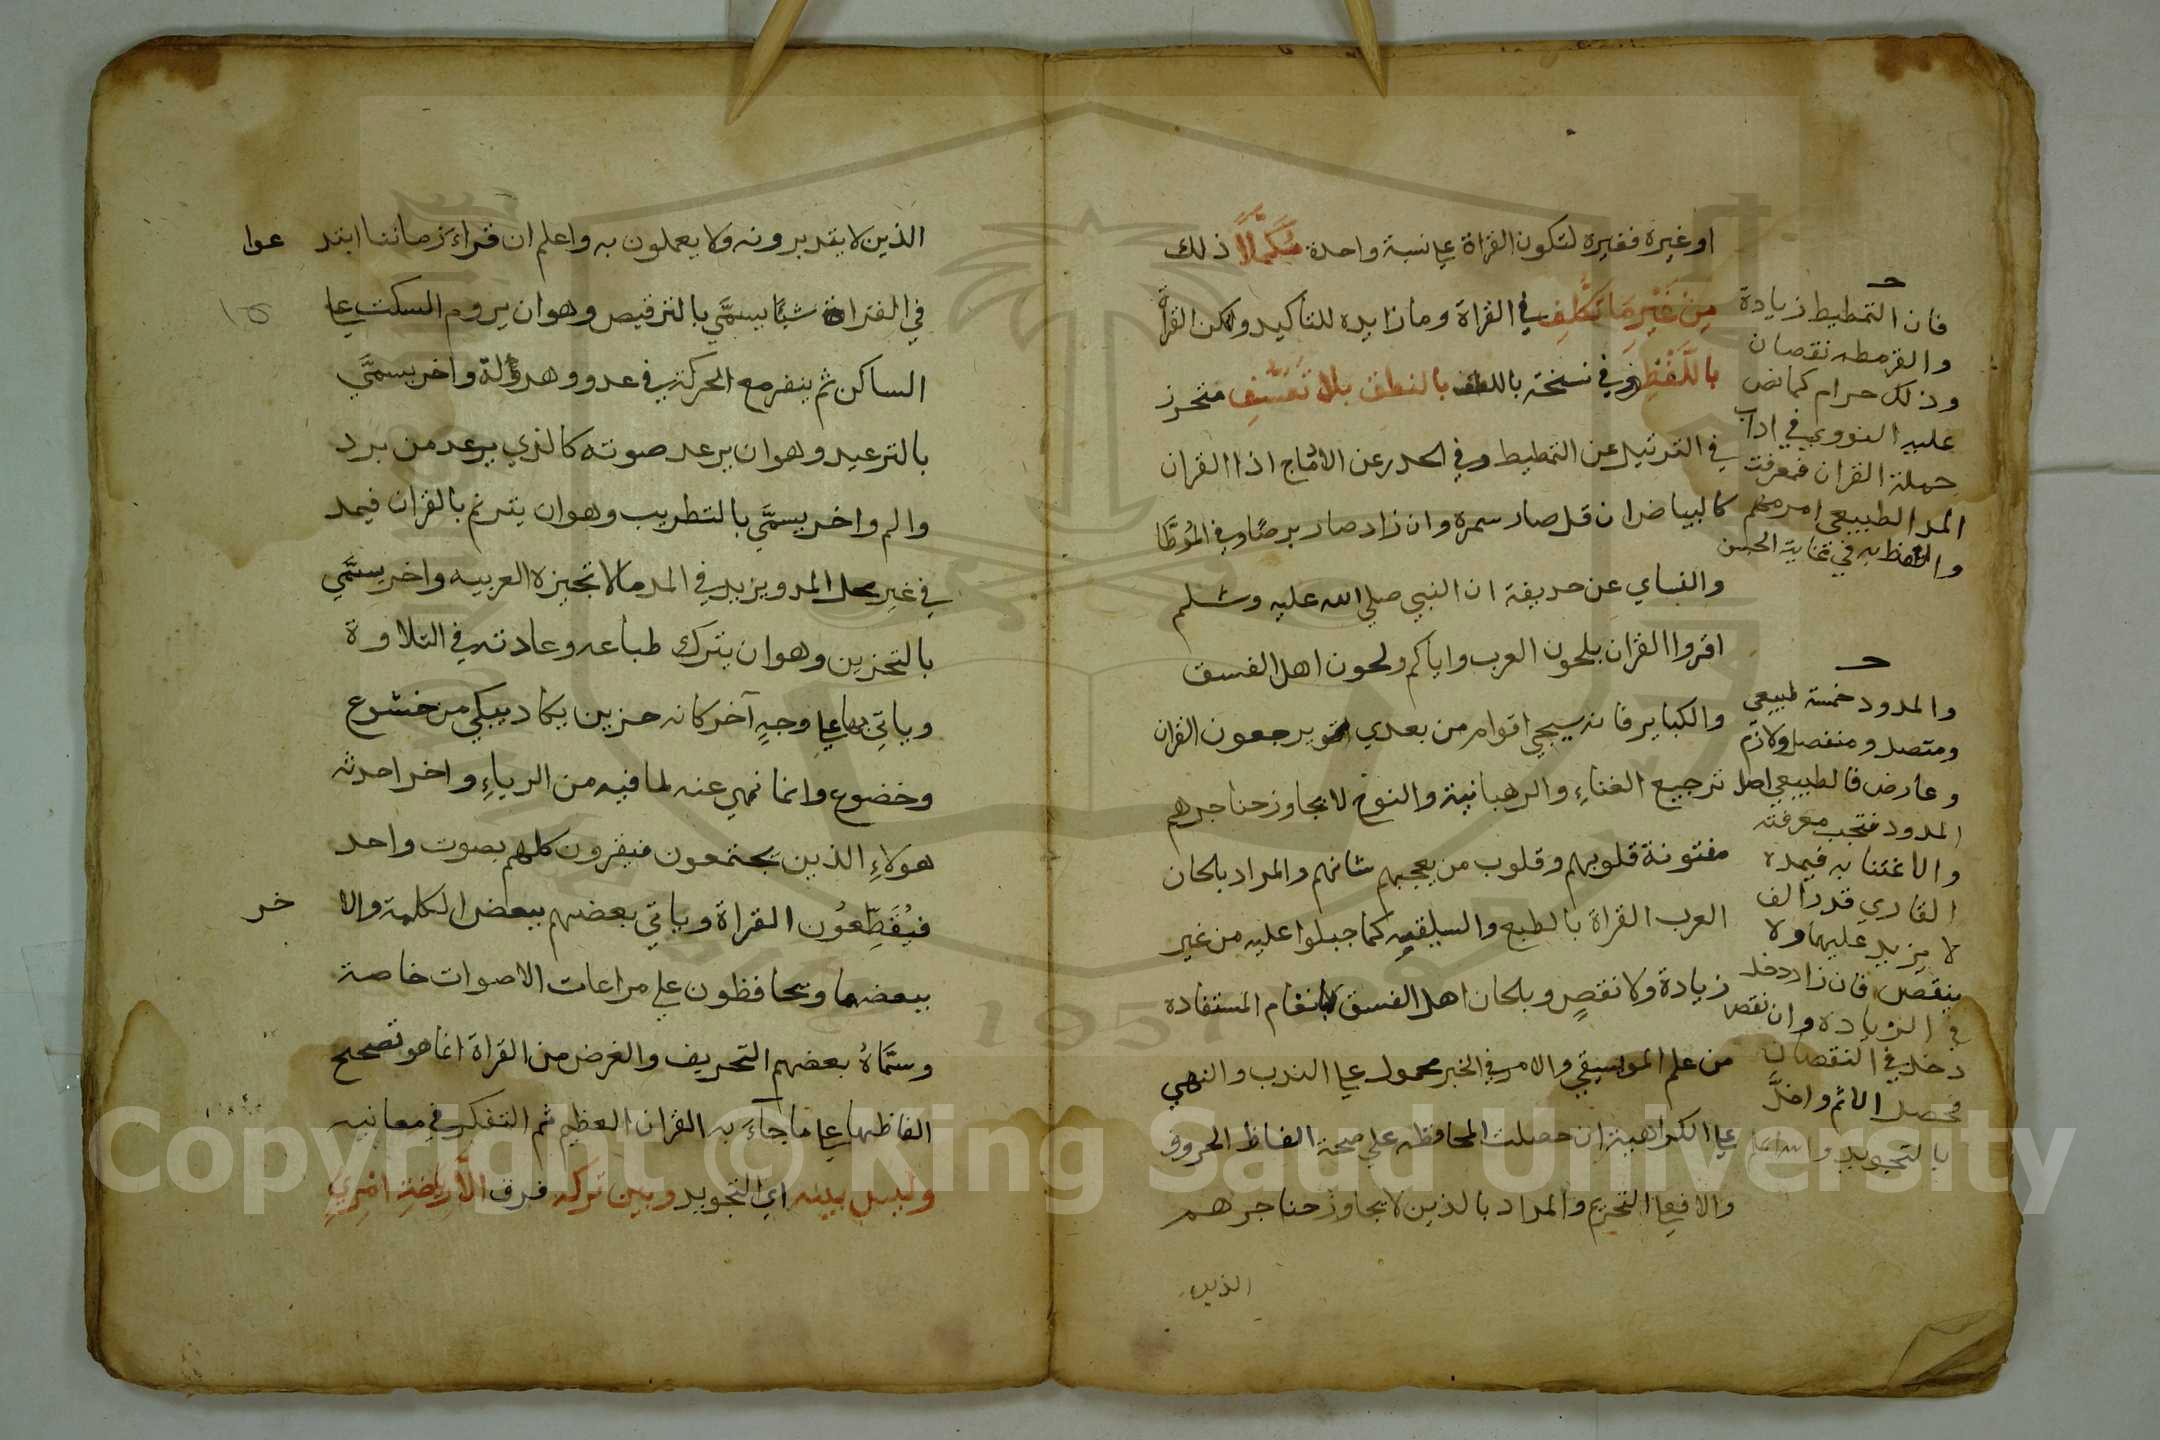 او غيره فغيره لتكون القراة علي نسبة واحدة مُكَمَّلاً ذلك
مِنْ غَيْرِ مَا تَكَلُّفِ في القراة وما زايده للتاكيد ولكن القراة
بِاللَّفْظِ وفي نسخة باللطف بالنطق بلا تَعَسُّفِ فتحرز
في الترتيل عن التمطيط وفي الحدر عن الادماج اذ القران
كالبياض ان قل صار سمرة وان زاد صار برصًا وفي المُوَطَّا
والنساي عن حديفة ان النبي صلي الله عليه وسلم
اقروا القران بلحون العرب واياكم ولحون اهل الفسق
والكباير فانه سيجي اقوام من بعدي يرجعون القران
ترجيع الغناءِ والرهبانية والنوح لا يجاوز حناجرهم
مفتونة قلوبهم وقلوب من يعجبهم شانهم والمراد بلحان
العرب القراة بالطبع والسليقيه كما جبلوا عليه من غير
زيادة ولا نقصٍ وبلحان اهل الفسق الانغام المستفادة
من علم الموسيقي والامر في الخبر محمول علي الندب والنهي
علي الكراهية ان حصلت المحافظه علي صحة الفاظ الحروف
والا فعلي التحريم والمراد بالذين لا يجاوز حناجرهم
الذين
فان التمطيط زيادة
والقرمطه نقصان
وذلك حرام كما نص
عليه النووي في اداب
حملة القران فمعرفت
المد الطبيعي امر مهم
والتحفظ به في غاية الحسن
والمدود خمسة طبيعي
ومتصل ومنفصل ولازم
وعارض فالطبيعي اصل
المدود فتجب معرفته
والاغتنا به فيمده
القاري قدر الف
لا يزيد عليها ولا
ينقص فان زاد دخل
في الزيادة وان نقص
دخل في النقصان
فحصل الاثم واخلَّ
بالتجويد والله اعلم
الذين لا يتدبرونه ولا يعملون به واعلم ان قراء زماننا ابتد عوا
في القراة شيًا يسمَّي بالترقيص وهو ان يروم السكت علي
الساكن ثم ينفر مع الحركة في عدو وهرولة واخر يسمَّي
بالترعيد وهو ان يرعد صوته كالذي يرعد من برد
والم واخر يسمَّي بالتطريب وهو ان يترنم بالقران فيمد
في غير محل المد ويزيد في المد مالا تجيزه العربيه واخر يسمَّي
بالتحزين وهو ان يترك طباعه وعادته في التلاوة
وياتي بها علي وجهٍ آخر كانه حزين يكاد يبكي من خشوع
وخضوع وانما نهي عنه لما فيه من الرياءِ واخر احدثه
هولاءِ الذين يجتمعون فيقرون كلهم بصوت واحد
فيُقَطِّعُون القراة وياتي بعضهم ببعض الكلمة والا خر
ببعضها ويحافظون علي مراعات الاصوات خاصة
وسمَّاهُ بعضهم التحريف والغرض من القراة انما هو تصحيح
الفاظها علي ما جاءَ به القران العظيم ثم التفكر في معانيه
وليس بينه اي التجويد وبين تركه فرق الا رياضة امري
Copyright © King Saud University
1957